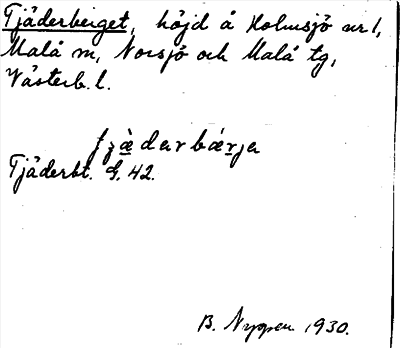 Tjäderberget, höjd å Holmsjö nr 1,
Malå sn, Norsjö och Malå tg,
Västerb. l.
Tjäderbt. G. 42.
B. Nygren 1930.